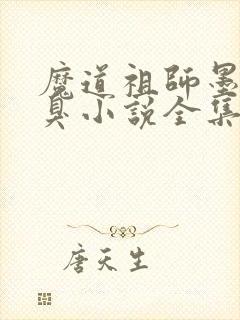 魔道祖師墨
臭小説全集
唐天生